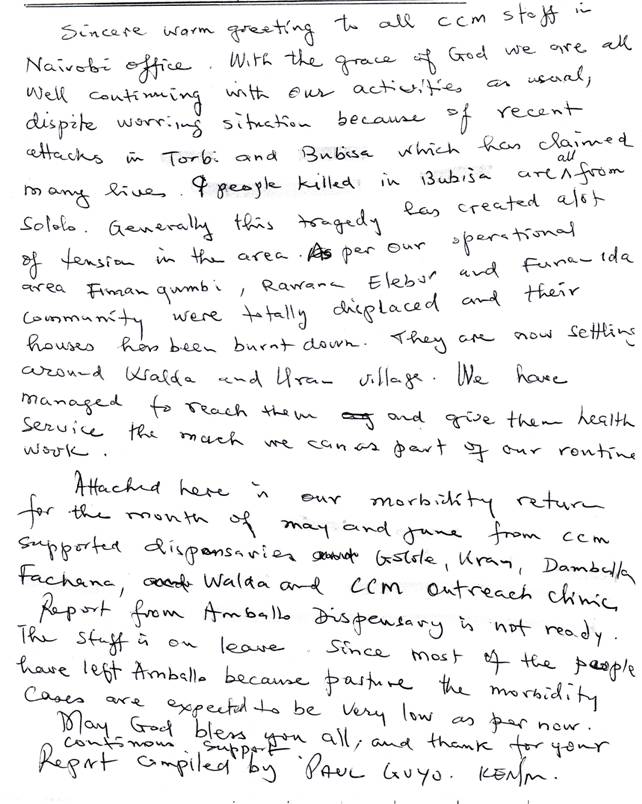 Sincere warm greeting to all CCM staff in
Nairobi office. With the grace of God we are all
well continuing with our activities as usual,
dispite worriing situation because of recent
attacks in Torbi and Bubisa which has claimed
many lives. 9 people killed in Bubisa are all from
Sololo. Generally this tragedy has created alot
of tension in the area. As per our operational
area Funan qumbi, Rawana Elebor and Funa-ida
community were totally displaced and their
houses has been burnt down. They are now settling
around Walda and Uran village. We have
managed to reach them and give them health
service the mach we can as part of our routine
work.
Attached here is our morbidity return
for the month of may and june from CCM
supported dispensaries Golole, Uran, Damballa
Fachana, Walda and CCM outreach clinic
Report from Amballo Dispensary is not ready.
The staff is on leave. Since most of the people
have left Amballo because pasture the morbidity
cases are expected to be very low as per now.
May God bless you all, and thank for your
continous support
Report compiled by PAUL GUYO.